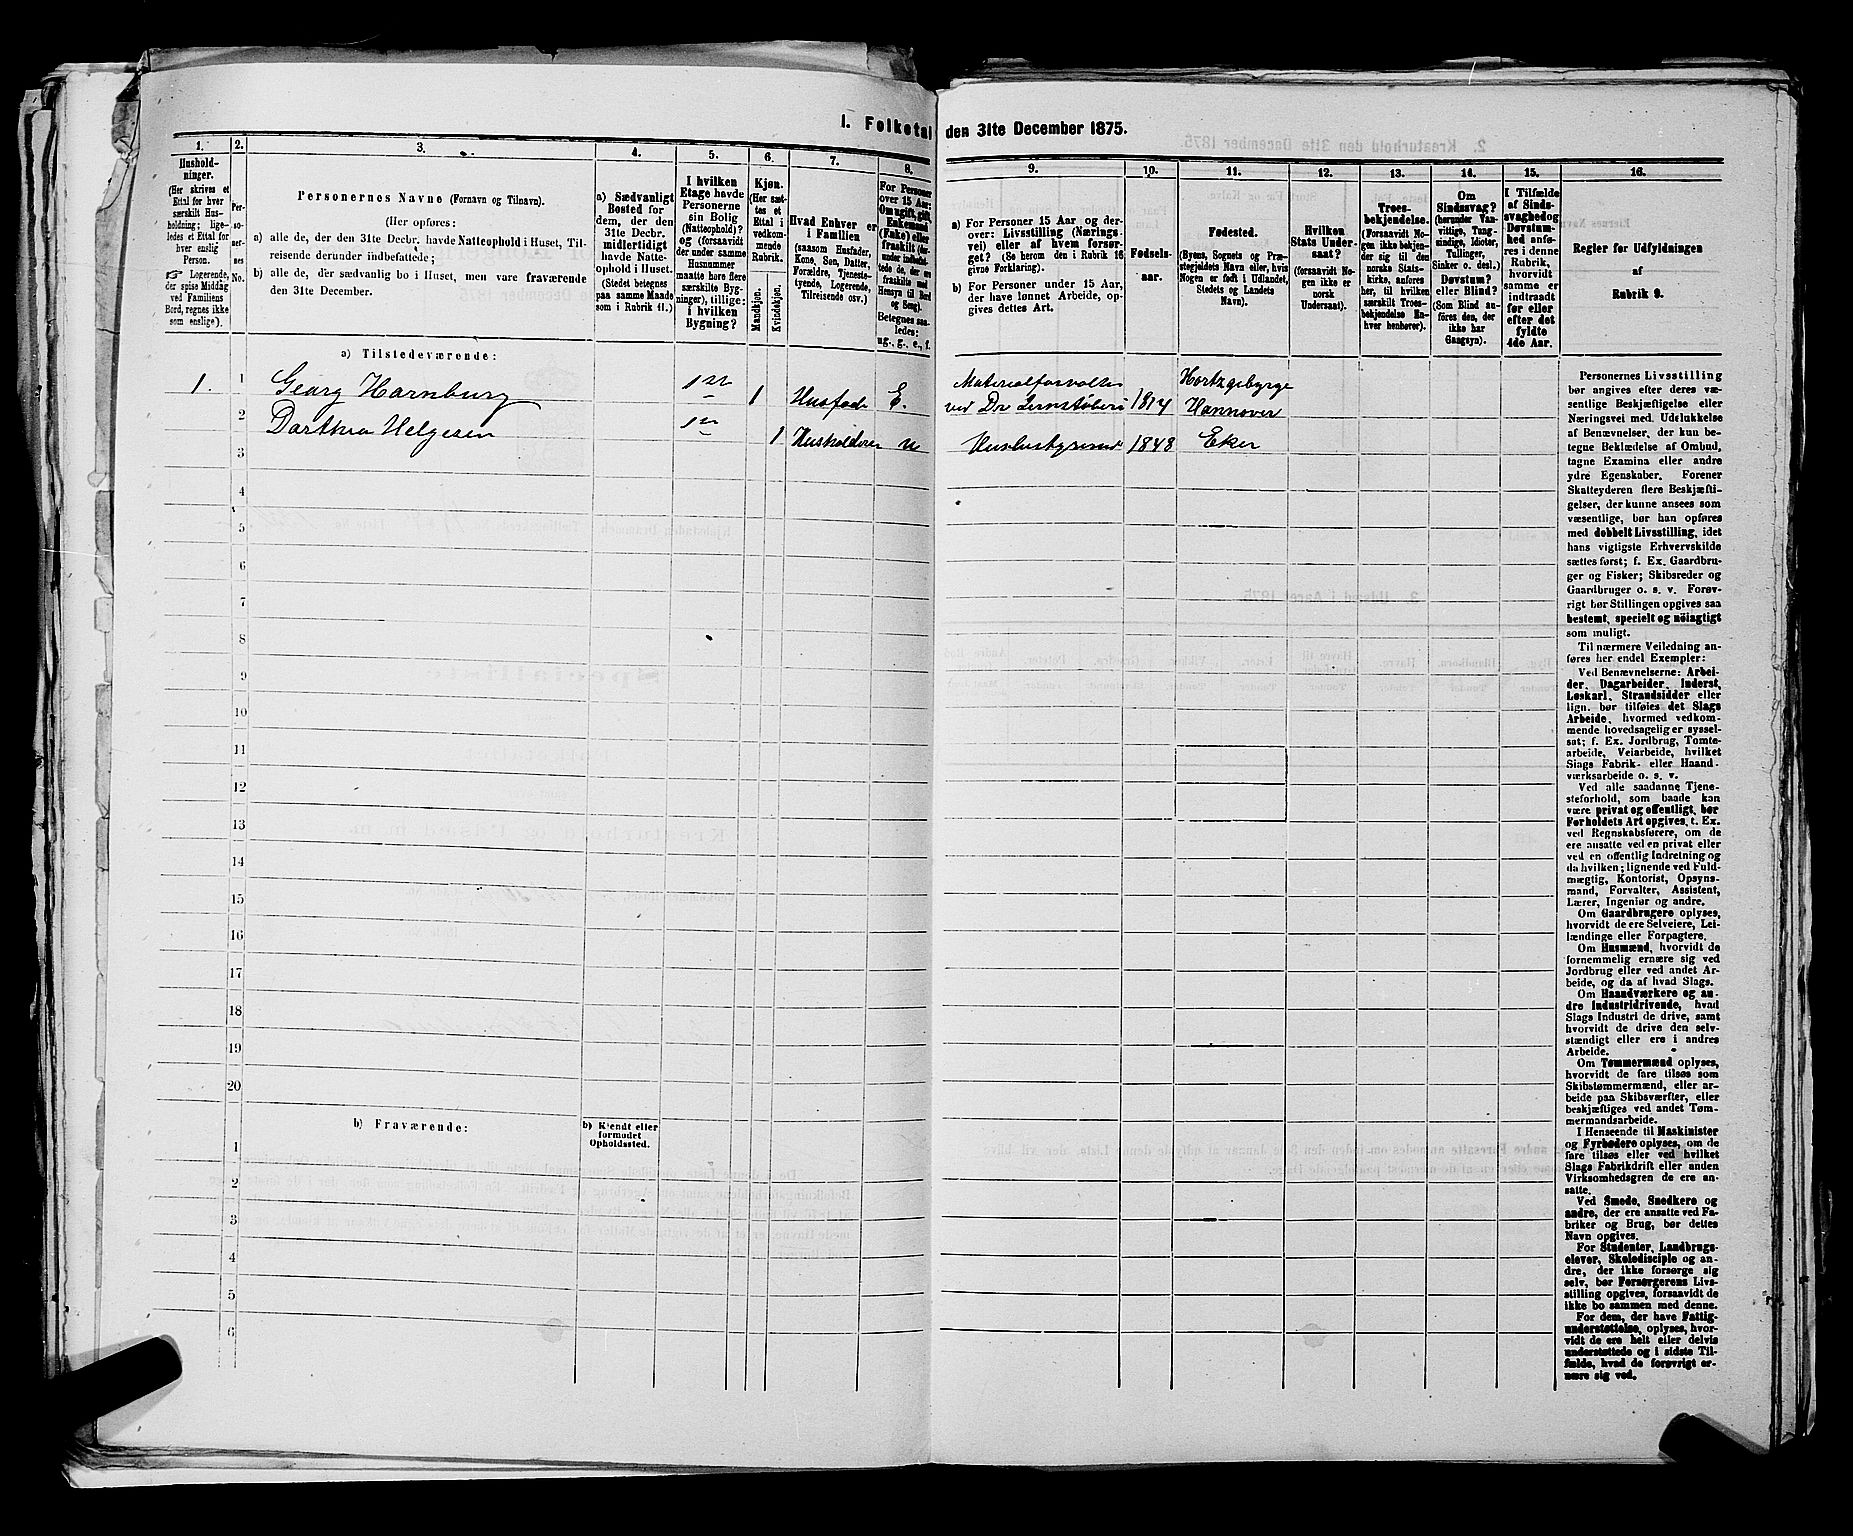 I. Folketal den 31te December 1875.
1.
Husholdninger.
(Her skrives et
Ettal for hver
særskilt Husholdning; ligeledes et Ettal for
hver enslig
Person.
☞ Logerende,
der spise Middag
ved Familiens
Bord, regnes ikke
som enslige).
2.
Personernes
No.
3.
Personernes Navne (Fornavn og Tilnavn).
(Her opføres:
a) alle de, der den 31te Decbr. havde Natteophold i Huset, Tilreisende derunder indbefattede;
b) alle de, der sædvanlig bo i Huset, men vare fraværende
den 31te December.
4.
a) Sædvanligt
Bosted for
dem, der den
31te Decbr.
midlertidigt
havde Natteophold i Huset.
(Stedet betegnes
paa samme Maade
som i Rubrik 11.)
5.
I hvilken
Etage havde
Personerne
sin Bolig
(Natteophold)?
og (forsaavidt
der under samme
Husnummer
maatte høre flere
særskilte Bygninger), tillige:
i hvilken
Bygning?
6.
Kjøn.
(Her sættes et
Ettal i
vedkommende
Rubrik.
Mandkjøn.
Kvindekjøn.
7.
Hvad Enhver er
i Familien
(saasom Husfader,
Kone, Søn, Datter,
Forældre, Tjenestetyende, Logerende,
Tilreisende osv.)
8.
For Personer
over 15 Aar:
Om ugift, gift,
Enkemand
(Enke) eller
fraskilt (herunder indbefattede de, der ere
fraskilte med
Hensyn til Bord
og Seng).
Betegnes saaledes:
ug., g., e., f.
9.
a) For Personer 15 Aar og derover: Livsstilling (Næringsvei) eller af hvem forsørget? (Se herom den i Rubrik 16
givne Forklaring).
b) For Personer under 15 Aar,
der have lønnet Arbeide, opgives dettes Art.
10.
Fødselsaar.
11.
Fødested.
(Byens, Sognets og Præstegjeldets Navn eller, hvis
Nogen er født i Udlandet,
Stedets og Landets
Navn).
12.
Hvilken
Stats Undersaat?
(forsaavidt Nogen ikke er
norsk
Undersaat).
13.
Troesbekjendelse.
(Forsaavidt Nogen ikke bekjender sig til den
norske Statskirke, anføres
her, til hvilken
særskilt Troesbekjendelse Enhver henhører).
14.
Om
Sindssvag?
(herunder Vanvittige, Tungsindige, Idioter,
Tullinger,
Sinker o. desl.)
Døvstum?
eller Blind?
(Som Blind anføres den, der
ikke har
Gangsyn).
15.
I Tilfælde
af Sindssvaghed og
Døvstumhed anføres i denne
Rubrik,
hvorvidt
samme er
indtraadt
før eller
efter det
fyldte
4de Aar.
16.
Regler for Udfyldningen
af
Rubrik 9.
a) Tilstedeværende:
1. 1 Georg Harnburg 1ste 1 Husfader E. Materialforvalter ved Dr 1814 Hortzgebyrge Hannover
2 Dorthea Helgesen 1ste 1 Husholderske u 1848 Eker
3
4
5
6
7
8
9
10
11
12
13
14
15
16
17
18
19
20
b) Fraværende:
b) Kjendt eller
formodet
Opholdssted.
1
2
3
4
5
6
Personernes Livsstilling
bør angives efter deres væsentlige Beskjæftigelse eller
Næringsvei med Udelukkelse
af Benævnelser, der kun betegne Beklædelse af Ombud,
tagne Examina eller andre
ydre Egenskaber. Forener
Skatteyderen flere Beskjæftigelser, der kunne ansees som
væsentlige, bør han opføres
med dobbelt Livsstilling, idet
hans vigtigste Erhvervskilde
sættes først; f. Ex. Gaardbruger og Fisker; Skibsreder og
Gaardbruger o. s. v. Forøvrigt bør Stillingen opgives saa
bestemt, specielt og nöiagtigt
som muligt.
Til nærmere Veiledning anføres her endel Exempler:
Ved Benævnelserne: Arbeider, Dagarbeider, Inderst,
Løskarl, Strandsidder eller
lign. bør tilføies det Slags
Arbeide, hvormed vedkommende hovedsagelig er sysselsat; f. Ex. Jordbrug, Tomtearbeide, Veiarbeide, hvilket
Slags Fabrik- eller Haandværksarbeide o. s. v.
Ved alle saadanne Tjenesteforhold, som baade kan
være privat og offentligt, bør
Forholdets Art opgives, t. Ex.
ved Regnskabsførere, om de
ere ansatte ved en privat eller
ved en offentlig Indretning og
da hvilken; lignende ved Fuldmægtig, Kontorist, Opsynsmand, Forvalter, Assistent,
Lærer, Ingeniør og andre.
Om Gaardbrugere oplyses,
hvorvidt de ere Selveiere, Leilændinge eller Forpagtere.
Om Husmænd, hvorvidt de
fornemmelig ernære sig ved
Jordbrug eller ved andet Arbeide, og da af hvad Slags.
Om Haandværkere og andre Industridrivende, hvad
Slags Industri de drive, samt
hvorvidt de drive den selvstændigt eller ere i andres
Arbeide.
Om Tømmermænd oplyses,
hvorvidt de fare tilsøs som
Skibstømmermænd, eller arbeide paa Skibsværfter, eller
beskjæftiges ved andet Tømmermandsarbeide.
I Henseende til Maskinister
og Fyrbødere oplyses, om de
fare tilsøs eller ved hvilket
Slags Fabrikdrift eller anden
Virksomhedsgren de ere ansatte.
Ved Smede, Snedkere og
andre, der ere ansatte ved Fabriker og Brug, bør dettes
Navn opgives.
For Studenter, Landbrugselever, Skoledisciple og andre, der ikke forsørge sig
selv, bør Forsørgerens Livsstilling opgives, forsaavidt de
ikke bo sammen med denne.
For dem, der have Fattigunderstøttelse, oplyses, hvorvidt de ere helt eller delvis
understøttede og i sidste Tilfælde, hvad de forøvrigt ernære sig ved.